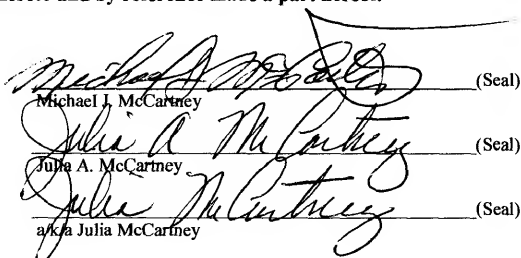 and by reference made a part hereof.
Michael J McCartney (Seal)
Michael J. McCartney
Julia A McCartney (Seal)
Julia A. McCartney
Julia McCartney (Seal)
a/k/a Julia McCartney